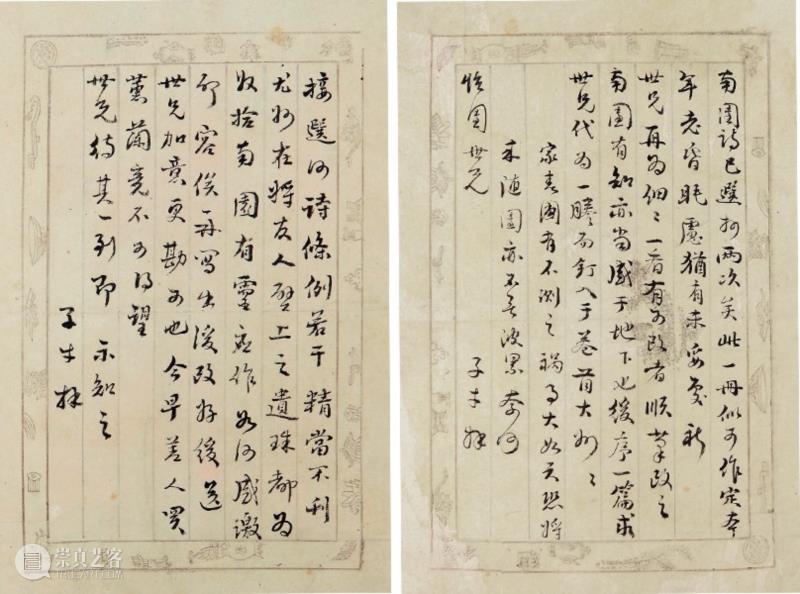 南園詩已選抄兩次矣此一冊似可作定本
年老昏眊處猶有未妥處祈
世兄再為細細一看有可改者順筆改之
南園有知亦當感于地下也後序一篇求
世兄代為一謄而釘入于卷首大妙大妙
家春圃有不測之禍事大如天恐將
來隨園亦不無波累奈何
怡園世兄
子才拜
接選詩條例若干精當不刊
尤妙在將友人壁上之遺珠都為
收拾南園有靈應作如何感激
容俟再寫出後改好後送
世兄加意更勘可也今早差人買
蕙蘭竟不可得望
世兄待其一到即示知之
子才拜
崇真艺客
TRUEART.COM